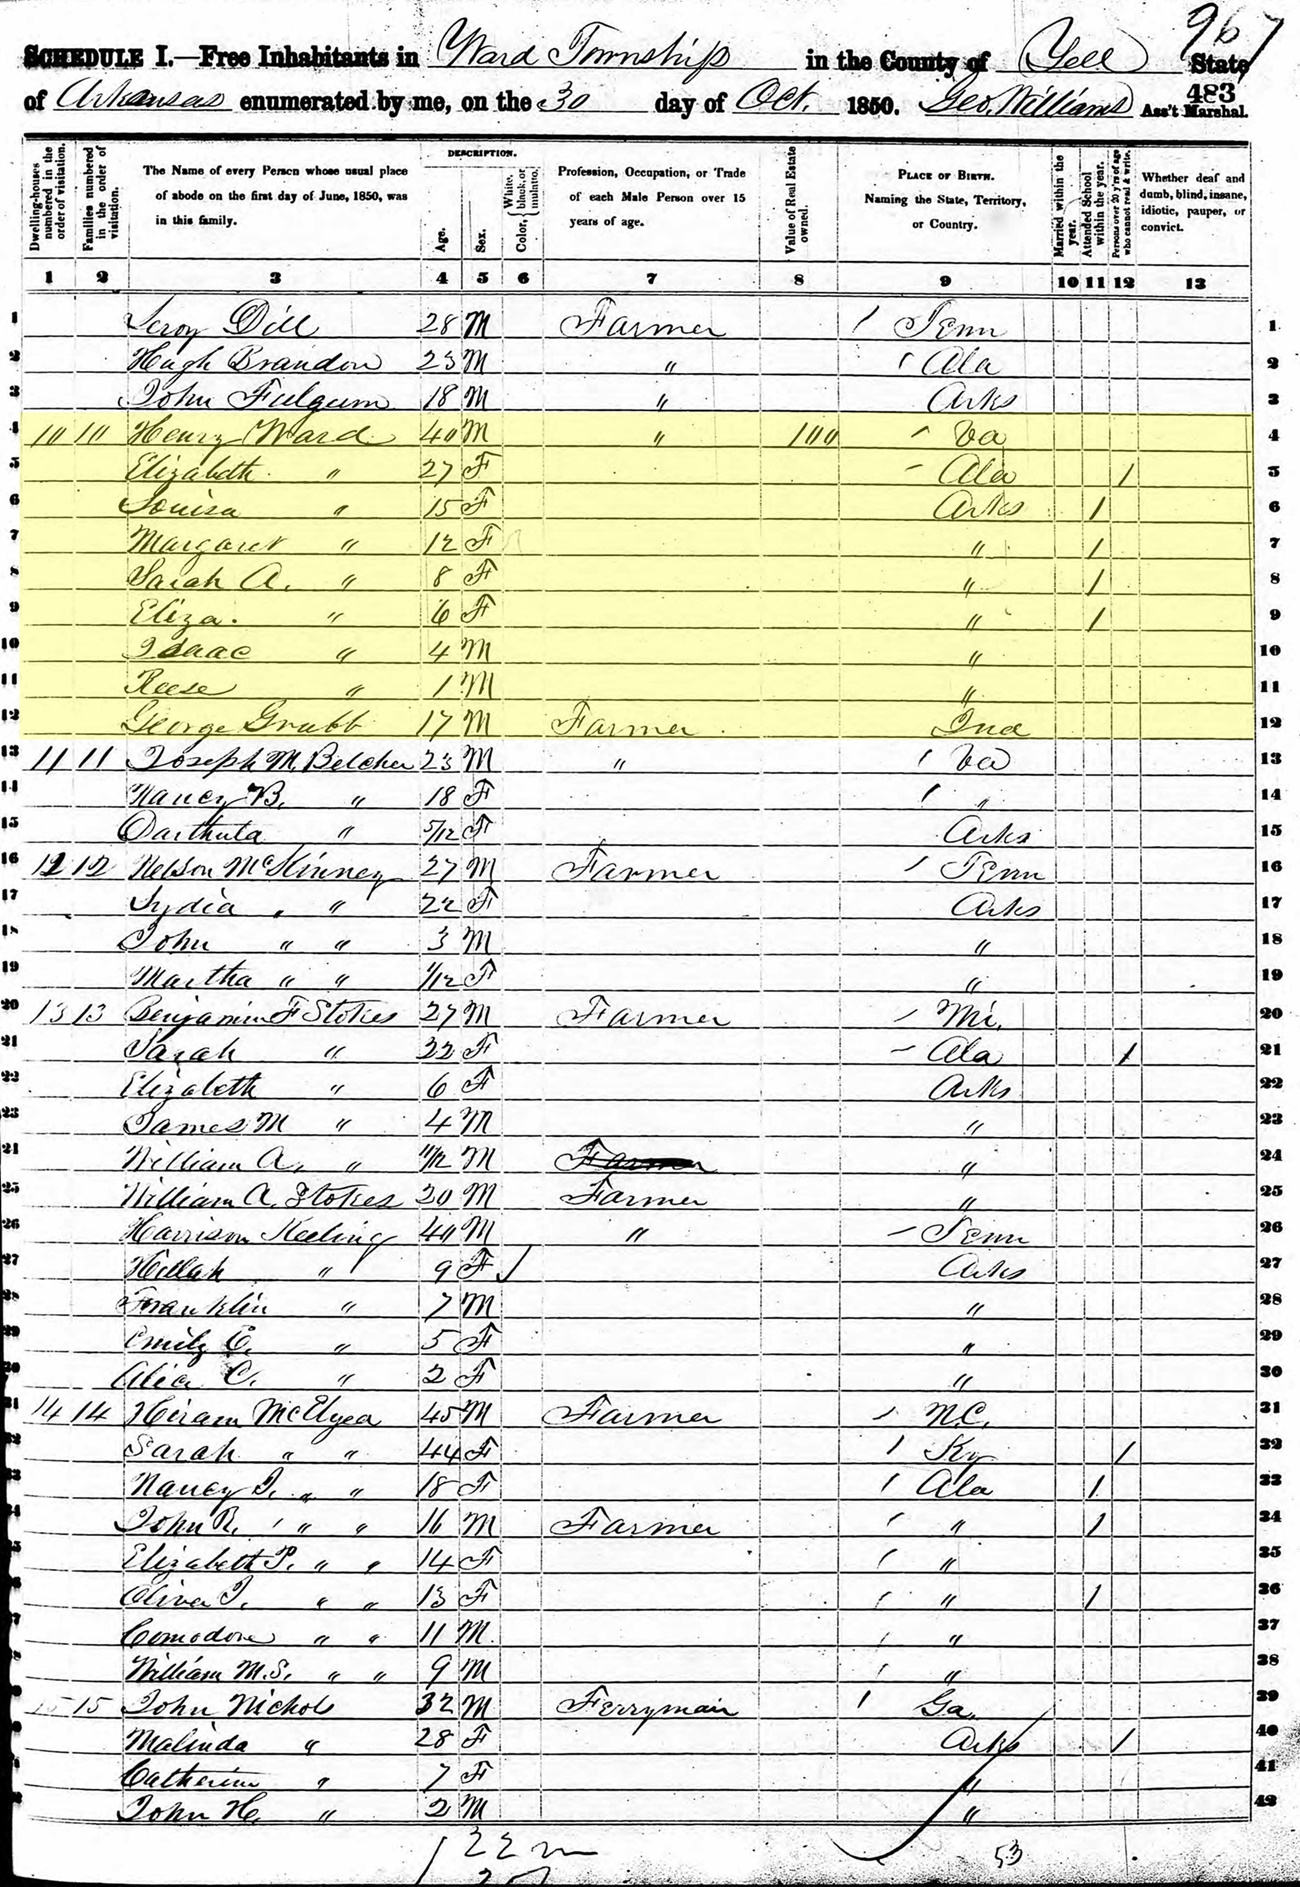 967
SCHEDULE I.—Free Inhabitants in Ward Township in the County of Yell State
of Arkansas enumerated by me, on the 30 day of Oct. 1850. Geo. Williams Ass't Marshal.
483
Dwelling-houses numbered in the order of visitation.
Families numbered in the order of visitation.
The Name of every Person whose usual place of abode on the first day of June, 1850, was in this family.
DESCRIPTION.
Age.
Sex.
Color, { White, black, or mulatto.
Profession, Occupation, or Trade of each Male Person over 15 years of age.
Value of Real Estate owned.
PLACE OF BIRTH. Naming the State, Territory, or Country.
Married within the year.
Attended School within the year.
Persons over 20 y'rs of age who cannot read & write.
Whether deaf and dumb, blind, insane, idiotic, pauper, or convict.
1 2 3 4 5 6 7 8 9 10 11 12 13
1 Leroy Dill 28 M Farmer / Tenn 1
2 Hugh Brandon 23 M " / Ala 2
3 John Fulgum 18 M " Arks 3
4 10 10 Henry Ward 40 M " 100 - Va 4
5 Elizabeth " 27 F - Ala / 5
6 Louisa " 15 F Arks / 6
7 Margaret " 12 F " / 7
8 Sarah A. " 8 F " / 8
9 Eliza. " 6 F " / 9
10 Isaac " 4 M " 10
11 Reese " 1 M " 11
12 George Grubb 17 M Farmer Ind 12
13 11 11 Joseph M. Belcher 23 M " / Va 13
14 Nancy B. " 18 F / " 14
15 Darthula " 5/12 F Arks 15
16 12 12 Nelson McKinney 27 M Farmer / Tenn 16
17 Lydia " " 22 F Arks 17
18 John " " 3 M " 18
19 Martha " " 1/12 F " 19
20 13 13 Benjamin F Stokes 27 M Farmer / Mi. 20
21 Sarah " 22 F - Ala / 21
22 Elizabeth " 6 F Arks 22
23 James M " 4 M " 23
24 William A. " 11/12 M Farmer " 24
25 William A. Stokes 20 M Farmer " 25
26 Harrison Keeling 40 M " - Tenn 26
27 Hillah " 9 F Arks 27
28 Franklin " 7 M " 28
29 Emily E. " 5 F " 29
30 Alice C. " 2 F " 30
31 14 14 Hiram McElyea 45 M Farmer / N.C. 31
32 Sarah " " 44 F / Ky / 32
33 Nancy J. " " 18 F / Ala / 33
34 John R. " " 16 M Farmer / " / 34
35 Elizabeth P. " " 14 F / " 35
36 Oliva J. " " 13 F / " / 36
37 Comodore " " 11 M. / " 37
38 William M.S. " " 9 M / " 38
39 15 15 John Nichols 32 M Ferryman / Ga. 39
40 Malinda " 28 F Arks / 40
41 Catherine " 7 F " 41
42 John H. " 2 M " 42
22 m
53